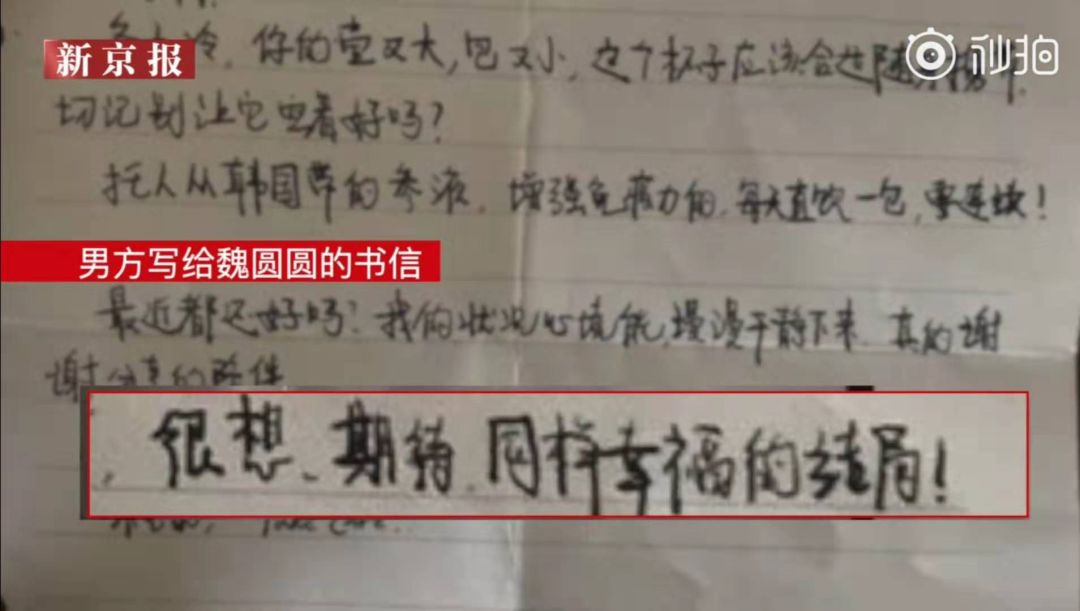 新京报
秒拍
冷,你的室又大,包又小,这个杯子应该会
切记别让它空着好吗?
托人从韩国带的参液,增强免疫力的,每天直饮一包,要连续!
男方写给魏圆圆的书信
最近都还好吗?我的状况心境能慢慢平静下来,真的谢
谢
,很想、期待,同样幸福的结局!
Take care.